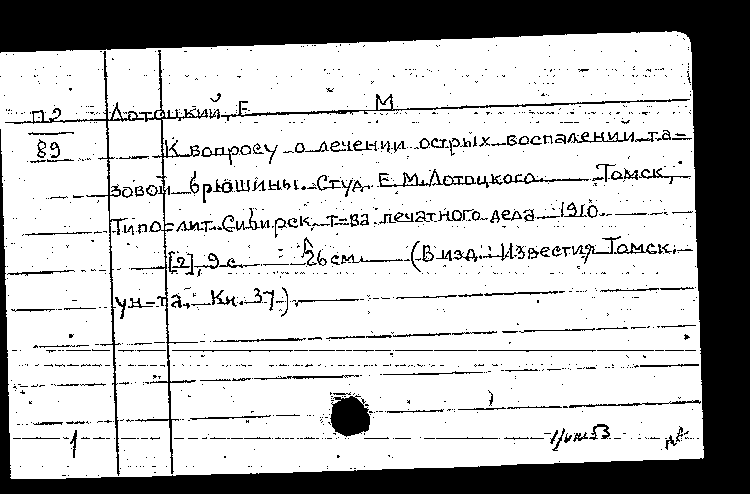 П2 Лотоцкий, Е М
89 К вопросу о лечении острых воспалений та-
зовой брюшины. Студ. Е.М.Лотоцкого. Томск,
Типо-лит. Сибирск. т-ва печатного дела 1910.
[2], 9 с. 26 см. (В изд.: Известия Томск.
ун-та. Кн. 37.).
1
53